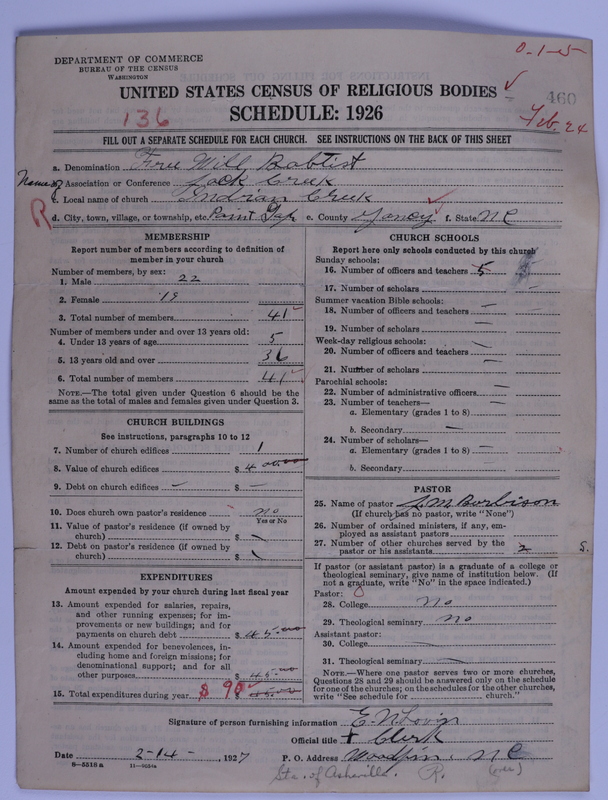 DEPARTMENT OF COMMERCE
BUREAU OF THE CENSUS
WASHINGTON
0-1-5
UNITED STATES CENSUS OF RELIGIOUS BODIES
460
136
SCHEDULE: 1926
Feb. 24
FILL OUT A SEPARATE SCHEDULE FOR EACH CHURCH. SEE INSTRUCTIONS ON THE BACK OF THIS SHEET
a. Denomination Free Will Babtist
Name of Association or Conference Jack Creek
c. Local name of church Indian Creek
R d. City, town, village, or township, etc. Point Gap e. County Yancy f. State NC
MEMBERSHIP
Report number of members according to definition of member in your church
Number of members, by sex:
1. Male 22
2. Female 19
3. Total number of members 41
Number of members under and over 13 years old:
4. Under 13 years of age 5
5. 13 years old and over 36
6. Total number of members 41
NOTE.—The total given under Question 6 should be the same as the total of males and females given under Question 3.
CHURCH BUILDINGS
See instructions, paragraphs 10 to 12
7. Number of church edifices 1
8. Value of church edifices $
9. Debt on church edifices — $ —
10. Does church own pastor's residence no
Yes or No
11. Value of pastor's residence (if owned by church) $
12. Debt on pastor's residence (if owned by church) $
EXPENDITURES
Amount expended by your church during last fiscal year
13. Amount expended for salaries, repairs, and other running expenses; for improvements or new buildings; and for payments on church debt $ 45.00
14. Amount expended for benevolences, including home and foreign missions; for denominational support; and for all other purposes $ 45.00
15. Total expenditures during year $ 90
CHURCH SCHOOLS
Report here only schools conducted by this church
Sunday schools:
16. Number of officers and teachers 5
17. Number of scholars —
Summer vacation Bible schools:
18. Number of officers and teachers —
19. Number of scholars —
Week-day religious schools:
20. Number of officers and teachers —
21. Number of scholars —
Parochial schools:
22. Number of administrative officers —
23. Number of teachers—
a. Elementary (grades 1 to 8) —
b. Secondary —
24. Number of scholars—
a. Elementary (grades 1 to 8) —
b. Secondary —
PASTOR
25. Name of pastor J. M. Borbison
(If church has no pastor, write "None")
26. Number of ordained ministers, if any, employed as assistant pastors
27. Number of other churches served by the pastor or his assistants 2 S.
If pastor (or assistant pastor) is a graduate of a college or theological seminary, give name of institution below. (If not a graduate, write "No" in the space indicated.)
Pastor:
28. College no
29. Theological seminary no
Assistant pastor:
30. College —
31. Theological seminary —
NOTE.—Where one pastor serves two or more churches, Questions 28 and 29 should be answered only on the schedule for one of the churches; on the schedules for the other churches, write "See schedule for church."
Signature of person furnishing information E. N. Lovin
Official title Clerk
Date 2-14-, 1927 P. O. Address Woodfin, NC
8-5518a 11-9054a
Sta. of Asheville. R.